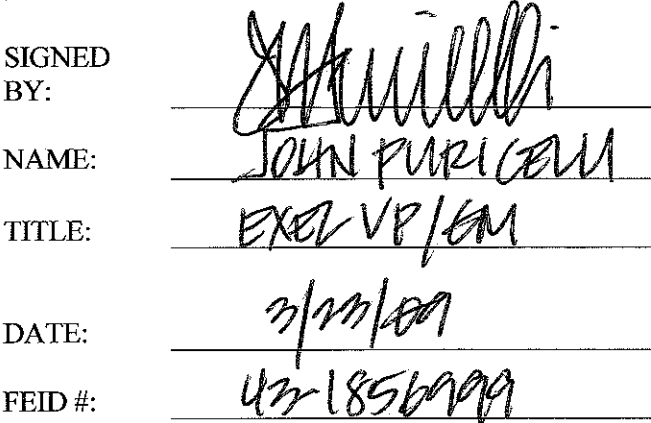 SIGNED
BY:
NAME: JOHN PURICELLI
TITLE: EXEC VP/GM
DATE: 3/23/09
FEID #: 43-1856999